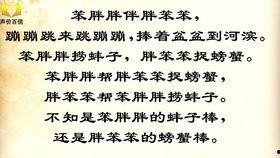 声价百倍
笨胖胖伴胖笨笨，
蹦蹦跳来跳蹦蹦，捧着盆盆到河滨。
笨胖胖捞蚌子，胖笨笨捉螃蟹。
笨胖胖帮胖笨笨捉螃蟹，
胖笨笨帮笨胖胖捞蚌子。
不知是笨胖胖的蚌子棒，
还是胖笨笨的螃蟹棒。